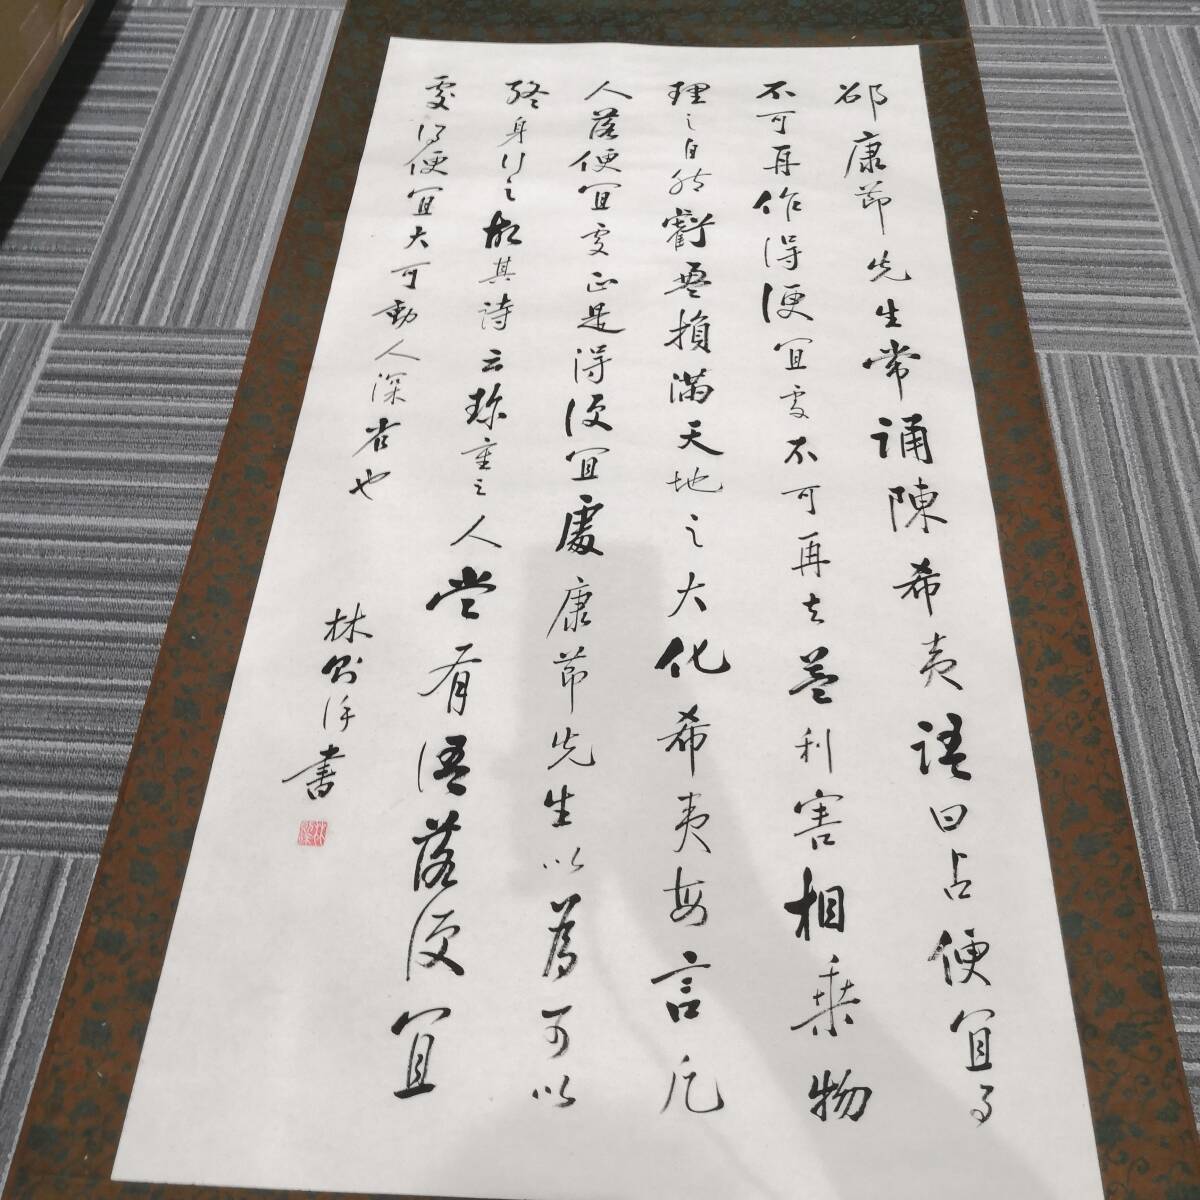 邵康節先生常誦陳希夷語曰占便宜事
不可再作得便宜處不可再去蓋利害相乘物
理之自然虧盈損滿天地之大化希夷每言凡
人落便宜處正是得便宜處康節先生以為可以
終身行之故其詩云珍重之人嘗有語落便宜
處得便宜大可動人深省也
林則徐書